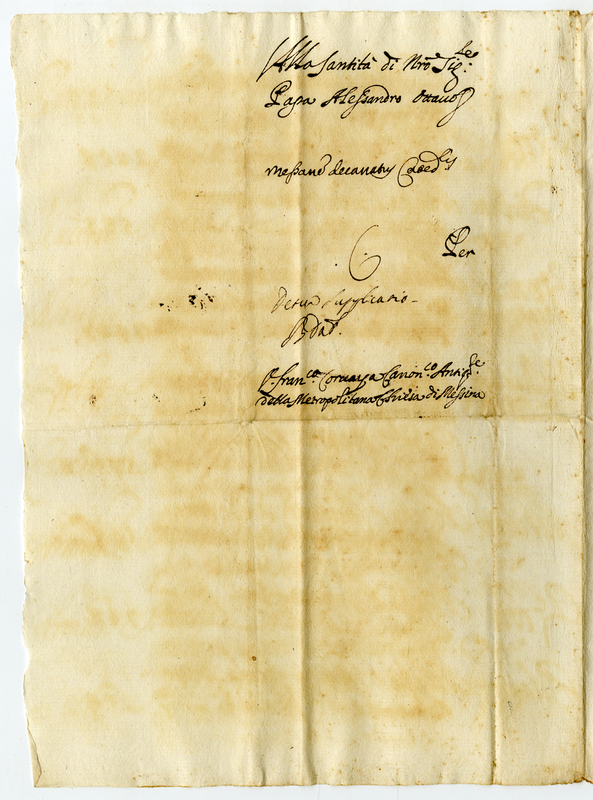 Alla Santità di Nro Sig.re
Papa Alessandro Ottavo
Messane decanatus
Per
Detur supplicatio
P. Fran.co Coruaya Canon.co Antiste
della Metropolitana Chiesa di Messina